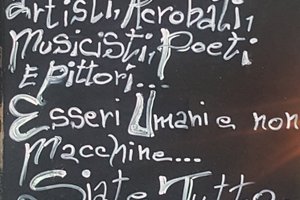 artisti, Acrobati,
Musicisti, Poeti
E Pittori...
Esseri Umani e non
Macchine...
Siate Tutto